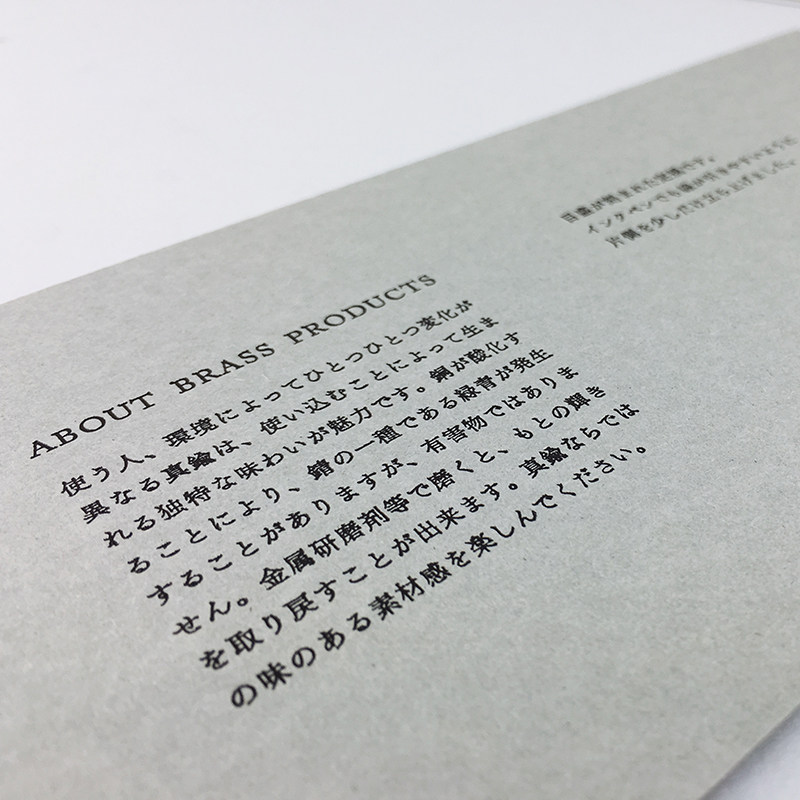 ABOUT BRASS PRODUCTS
使う人、環境によってひとつひとつ変化が
異なる真鍮は、使い込むことによって生ま
れる独特な味わいが魅力です。銅が酸化す
ることにより、錆の一種である緑青が発生
することがありますが、有害物ではありま
せん。金属研磨剤等で磨くと、もとの輝き
を取り戻すことが出来ます。真鍮ならでは
の味のある素材感を楽しんでください。
目盛が刻まれた定規です。
インクペンでも線が引きやすいように
片側を少しだけ立ち上げました。